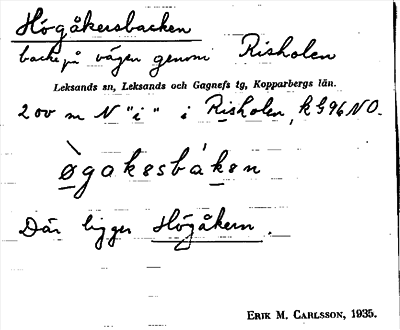 Högåkersbacken
backe på vägen genom Risholen
Leksands sn, Leksands och Gagnefs tg, Kopparbergs län.
200 m N "i" i Risholen, k G 96 NO.
øgakesbaken
Där ligger Högåkern.
ERIK M. CARLSSON, 1935.